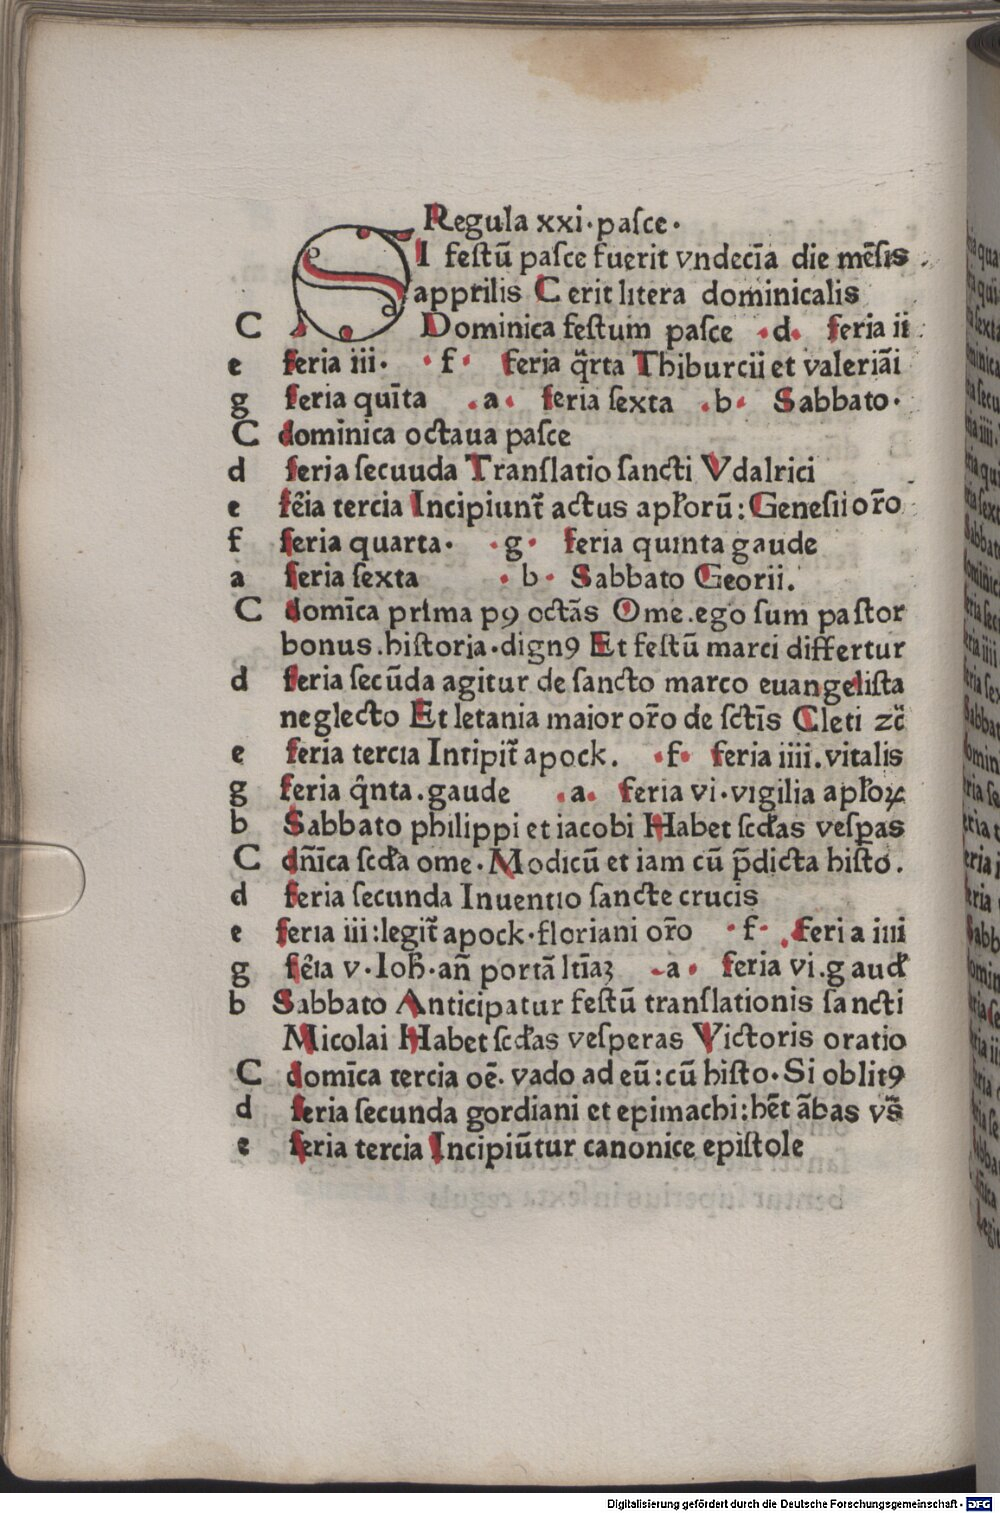 Regula xxi·paſce·
SI feſtū paſce fuerit vndecīa die mēſis
apprilis C erit litera dominicalis
C Dominica feſtum paſce ·d· feria ii
e feria iii· ·f· feria q̄rta Thiburcii et valeriāi
g feria quīta ·a· feria ſexta ·b· Sabbato·
C dominica octaua paſce
d feria ſecuuda Tranſlatio ſancti Vdalrici
e fēia tercia Incipiunt̄ actus apl̄orū: Geneſii or̄o
f feria quarta· ·g· feria quinta gaude
a feria ſexta ·b· Sabbato Georii.
C domīca prima pꝯ octās Ome.ego ſum paſtor
bonus.hiſtoria·dignꝯ Et feſtū marci differtur
d feria ſecūda agitur de ſancto marco euangeliſta
neglecto Et letania maior or̄o de ſctīs Cleti ꝛc̄
e feria tercia Intipit̄ apock. ·f· feria iiii.vitalis
g feria q̄nta.gaude ·a· feria vi·vigilia apl̄oꝝ
b Sabbato philippi et iacobi Habet ſcd̄as veſpas
C dn̄ica ſcd̄a ome·Modicū et iam cū p̄dicta hiſto.
d feria ſecunda Inuentio ſancte crucis
e feria iii:legit̄ apock·floriani or̄o ·f· feri a iiii
g fēia v·Ioh̄·an̄ portā ltīaʒ ·a· feria vi.gaud̄
b Sabbato Anticipatur feſtū tranſlationis ſancti
Micolai Habet ſcd̄as veſperas Victoris oratio
C domīca tercia oē·vado ad eū:cū hiſto·Si oblitꝯ
d feria ſecunda gordiani et epimachi:hēt ābas vs̄
e feria tercia Incipiūtur canonice epiſtole
Digitalisierung gefördert durch die Deutsche Forschungsgemeinschaft - DFG